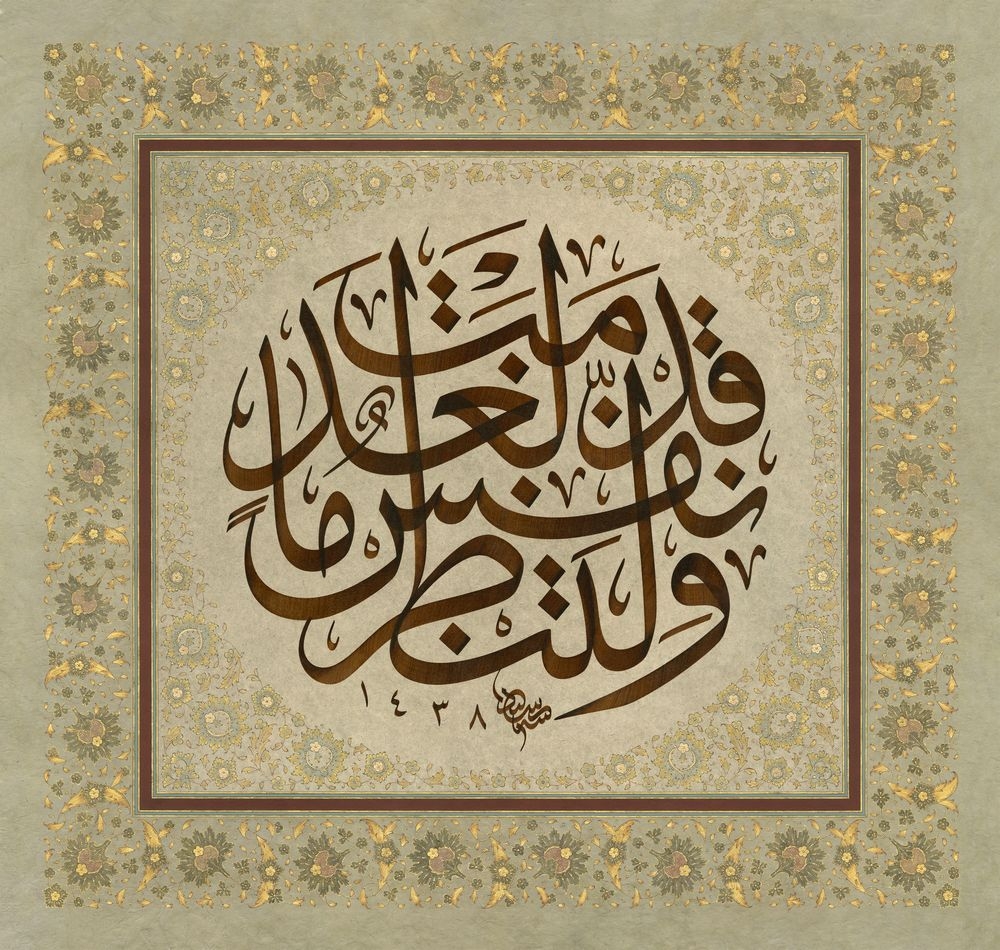 وَلْتَنظُرْ نَفْسٌ مَّا قَدَّمَتْ لِغَدٍ
١٤٣٨